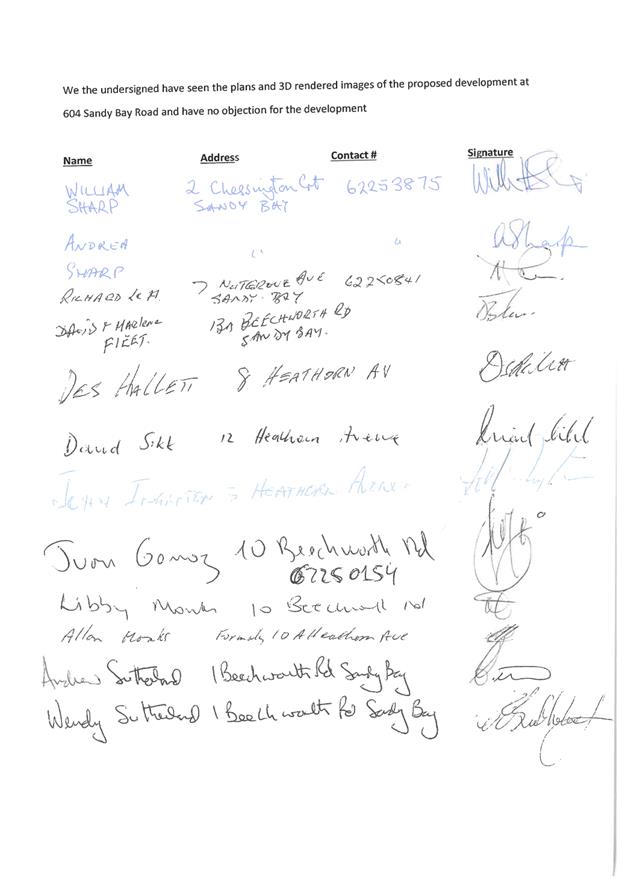 We the undersigned have seen the plans and 3D rendered images of the proposed development at
604 Sandy Bay Road and have no objection for the development
Name Address Contact # Signature
WILLIAM 2 Chessington Crt 62253875
SHARP SANDY BAY
ANDREA " " A Sharp
SHARP
RICHARD 7 NUTGROVE AVE 62250841
SANDY BAY
DAVID & MARLENE 13A BEECHWORTH RD
FLEET. SANDY BAY.
DES HALLETT 8 HEATHORN AV
David 12 Heathorn Avenue
HEATHORN
Gomez 10 Beechworth Rd
62250154
Libby Monks 10 Rd
Allan Monks Formerly 10 A Heathorn Ave
Andrew Sutherland 1 Beechworth Rd Sandy Bay
Wendy Sutherland 1 Beechworth Rd Sandy Bay